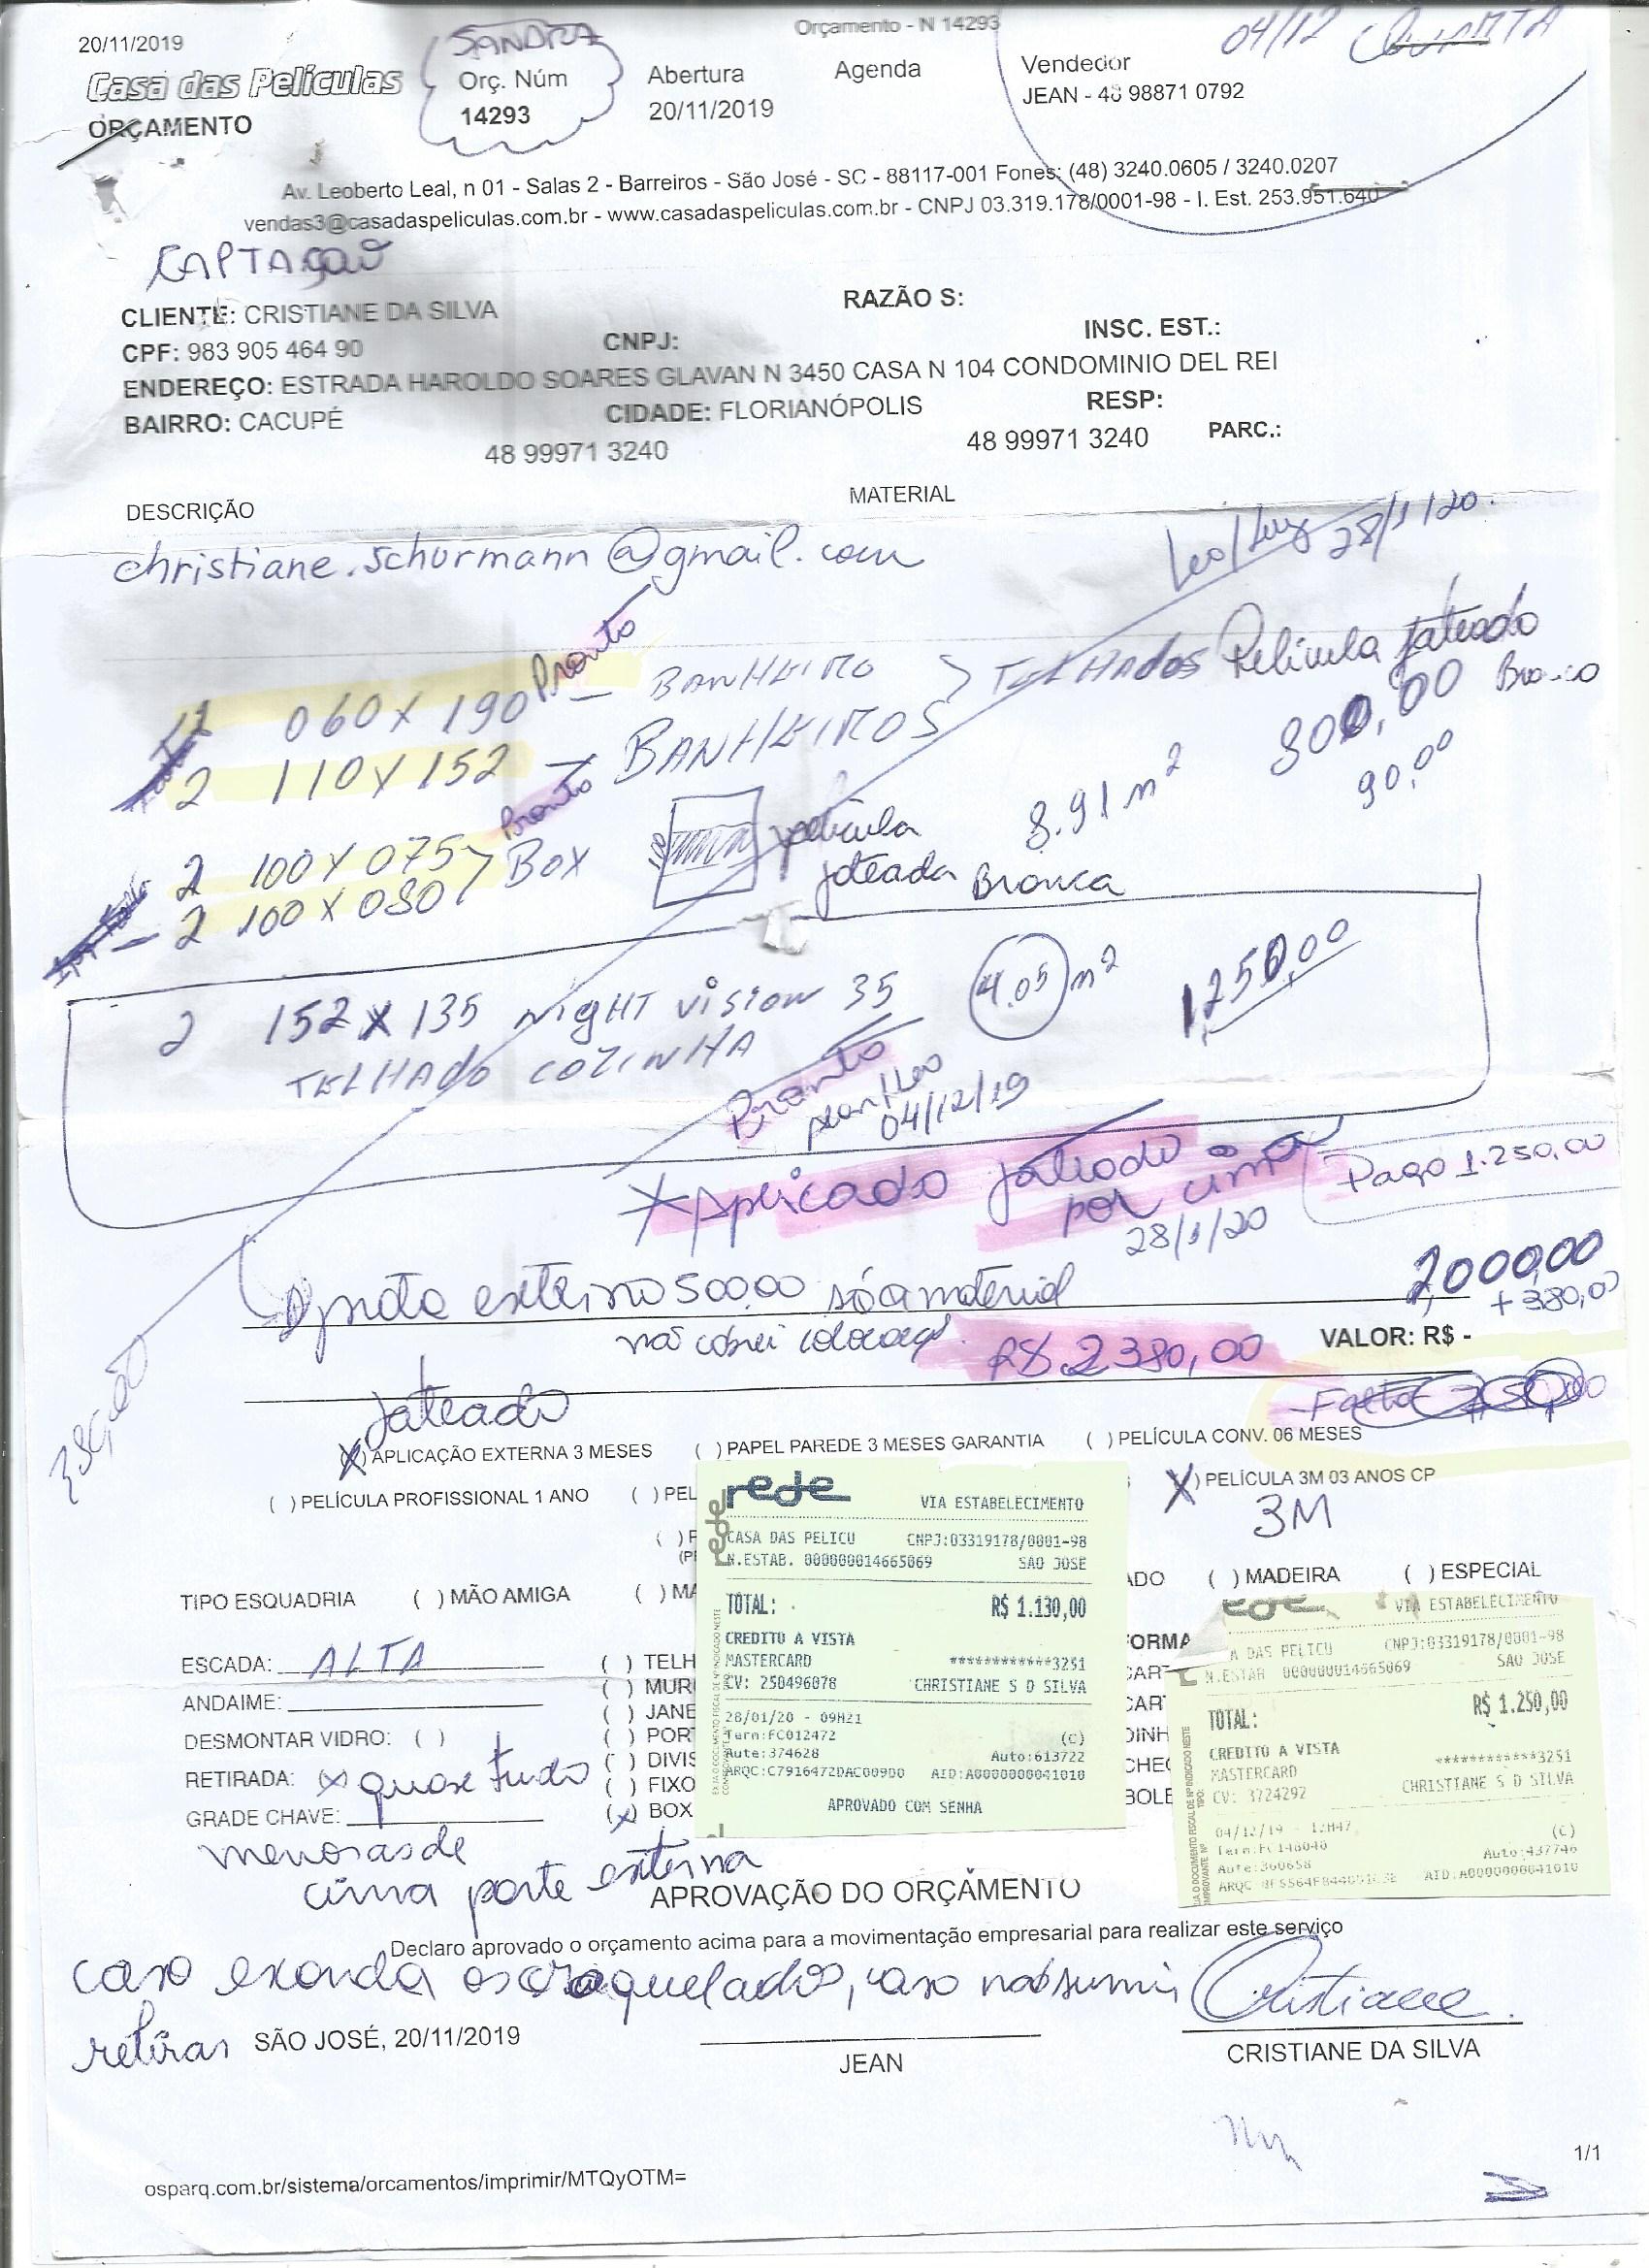 Orçamento - N 14293
20/11/2019
SANDRA
04/12 QUARTA
Casa das Películas
ORÇAMENTO
Orç. Núm
14293
Abertura
20/11/2019
Agenda
Vendedor
JEAN - 48 98871 0792
Av. Leoberto Leal, n 01 - Salas 2 - Barreiros - São José - SC - 88117-001 Fones: (48) 3240.0605 / 3240.0207
vendas3@casadaspeliculas.com.br - www.casadaspeliculas.com.br - CNPJ 03.319.178/0001-98 - I. Est. 253.951.640
CAPTAÇÃO
CLIENTE: CRISTIANE DA SILVA
RAZÃO S:
CPF: 983 905 464 90
CNPJ:
INSC. EST.:
ENDEREÇO: ESTRADA HAROLDO SOARES GLAVAN N 3450 CASA N 104 CONDOMINIO DEL REI
BAIRRO: CACUPÉ
CIDADE: FLORIANÓPOLIS
RESP:
48 99971 3240
48 99971 3240
PARC.:
DESCRIÇÃO
MATERIAL
christiane.schurmann@gmail.com
Leo/Luy 28/1/20.
Pronto
060 x 190 - BANHEIRO
TELHADOS Película Jateado
Branco
2 110 x 152 - BANHEIROS
800,00
90,00
Pronto
2 100 x 075
2 100 x 080
BOX
película
jateada Branca
8.91 m²
2 152 x 135 NIGHT VISION 35
4.05 m²
1250,00
TELHADO COZINHA
Pronto
Jean/Leo
04/12/19
* Aplicado jateado
por cima
28/1/20
Pago 1.250,00
externo 500,00 só o material
não cobrei
2000,00
+ 380,00
R$ 2380,00
VALOR: R$ -
380,00
Falta
Jateado
(X) APLICAÇÃO EXTERNA 3 MESES
( ) PAPEL PAREDE 3 MESES GARANTIA
( ) PELÍCULA CONV. 06 MESES
( ) PELÍCULA PROFISSIONAL 1 ANO
( ) PEL
(X) PELÍCULA 3M 03 ANOS CP
3M
TIPO ESQUADRIA
( ) MÃO AMIGA
( ) MA
ADO
( ) MADEIRA
( ) ESPECIAL
ESCADA: ALTA
ANDAIME:
DESMONTAR VIDRO: ( )
RETIRADA: (X) quase tudo
GRADE CHAVE:
menos as de
cima parte externa
( ) TELH
( ) MUR
( ) JANE
( ) PORT
( ) DIVIS
( ) FIXO
(X) BOX
FORMA
CART
CART
DINH
CHEC
BOLE
rede
VIA ESTABELECIMENTO
CASA DAS PELICU CNPJ:03319178/0001-98
N.ESTAB. 000000014665069 SAO JOSE
TOTAL: R$ 1.130,00
CREDITO A VISTA
MASTERCARD ************3251
CV: 250496078 CHRISTIANE S D SILVA
28/01/20 - 09H21
Term:FC012472 (C)
Aute:374628 Auto:613722
ARQC:C7916472DAC009D0 AID:A0000000041010
APROVADO COM SENHA
VIA ESTABELECIMENTO
A DAS PELICU CNPJ:03319178/0001-98
N.ESTAB 000000014665069 SAO JOSE
TOTAL: R$ 1.250,00
CREDITO A VISTA
MASTERCARD ************3251
CV: 3724292 CHRISTIANE S D SILVA
04/12/19 - 12H47
(C)
Aute:360658 Auto:437746
AID:A0000000041010
APROVAÇÃO DO ORÇAMENTO
Declaro aprovado o orçamento acima para a movimentação empresarial para realizar este serviço
caso esconda os craquelados, caso não sumir
retirar
Cristiane
SÃO JOSÉ, 20/11/2019
JEAN
CRISTIANE DA SILVA
1/1
osparq.com.br/sistema/orcamentos/imprimir/MTQyOTM=